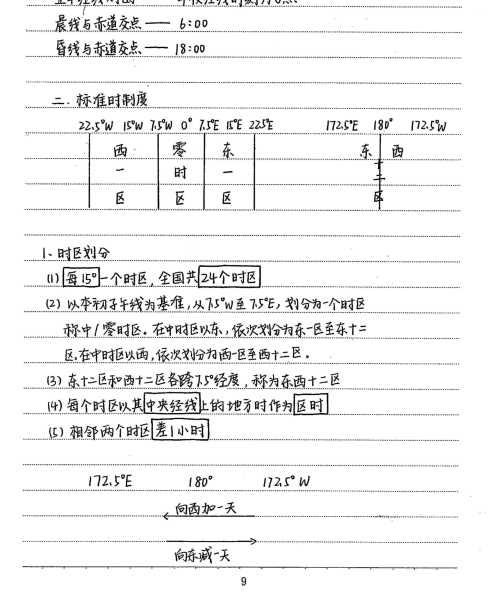 晨线与赤道交点 —— 6:00
昏线与赤道交点 —— 18:00
二. 标准时制度
22.5°W 15°W 7.5°W 0° 7.5°E 15°E 22.5°E 172.5°E 180° 172.5°W
西 零 东 东 西
一 时 一 十二
区 区 区 区
1、时区划分
(1) 每15°一个时区，全国共24个时区
(2) 以本初子午线为基准，从7.5°W至7.5°E，划分为一个时区
称中/零时区。在中时区以东，依次划分为东一区至东十二
区，在中时区以西，依次划分为西一区至西十二区。
(3) 东十二区和西十二区各跨7.5°经度，称为东西十二区
(4) 每个时区以其中央经线上的地方时作为区时
(5) 相邻两个时区差1小时
172.5°E 180° 172.5°W
向西加一天
向东减一天
9